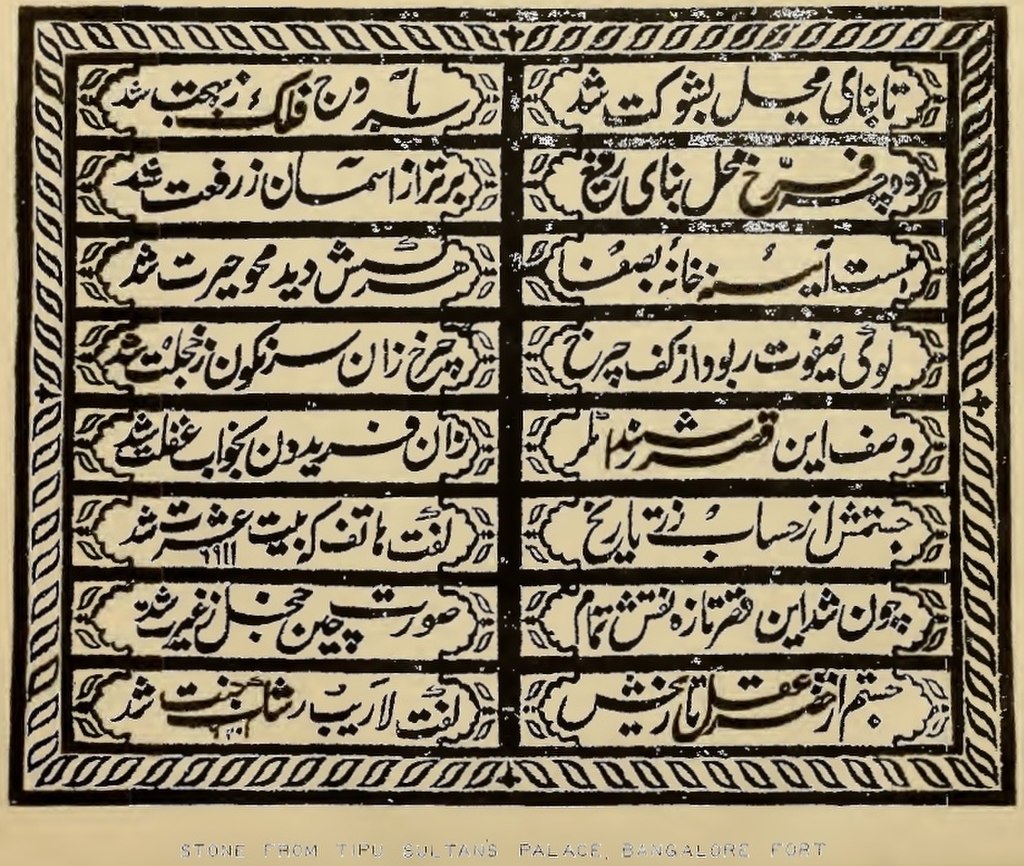 تا بنای محل بشوکت شد
سر بأوج فلک ز بهجت شد
وه چه فرّخ محل بنای رفیع
برتر از آسمان ز رفعت شد
هست آئینه خانهٔ بصفا
هر کسش دید محو حیرت شد
گوئی صفوت ربود از کف چرخ
چرخ زان سرنگون ز خجلت شد
وصف این قصر شنید مگر
زان فریدون بخواب غفلت شد
جستمش از حساب زر تاریخ
گفت هاتف که بیت عشرت شد
چون شد این قصر تازه نقش تمام
صورت چین خجل ز غیرت شد
جستم از خضر عقل تاریخش
گفت لاریب رشک جنت شد
STONE FROM TIPU SULTAN'S PALACE, BANGALORE FORT